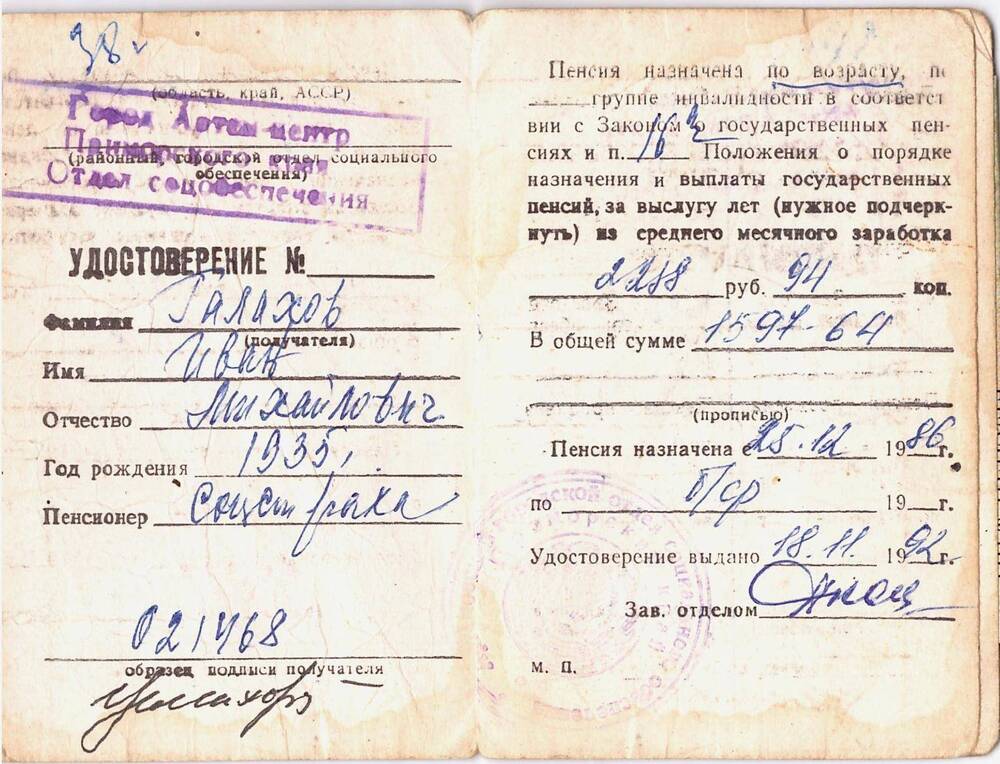 38 г
(область, край, АССР)
Город Артем-центр
Приморского края
Отдел соцобеспечения
(районный, городской отдел социального
обеспечения)
УДОСТОВЕРЕНИЕ №
Фамилия Галахов
(получателя)
Имя Иван
Отчество Михайлович
Год рождения 1935 г.
Пенсионер соцстраха
021468
образец подписи получателя
Пенсия назначена по возрасту, по
группе инвалидности в соответст
вии с Законом о государственных пен-
сиях и п. 163 Положения о порядке
назначения и выплаты государственных
пенсий, за выслугу лет (нужное подчерк-
нуть) из среднего месячного заработка
2288 руб. 94 коп.
В общей сумме 1597-64
(прописью)
Пенсия назначена с 25.12 1986 г.
по п/ср 19 г.
Удостоверение выдано 18.11 1992 г.
Зав. отделом
м. п.